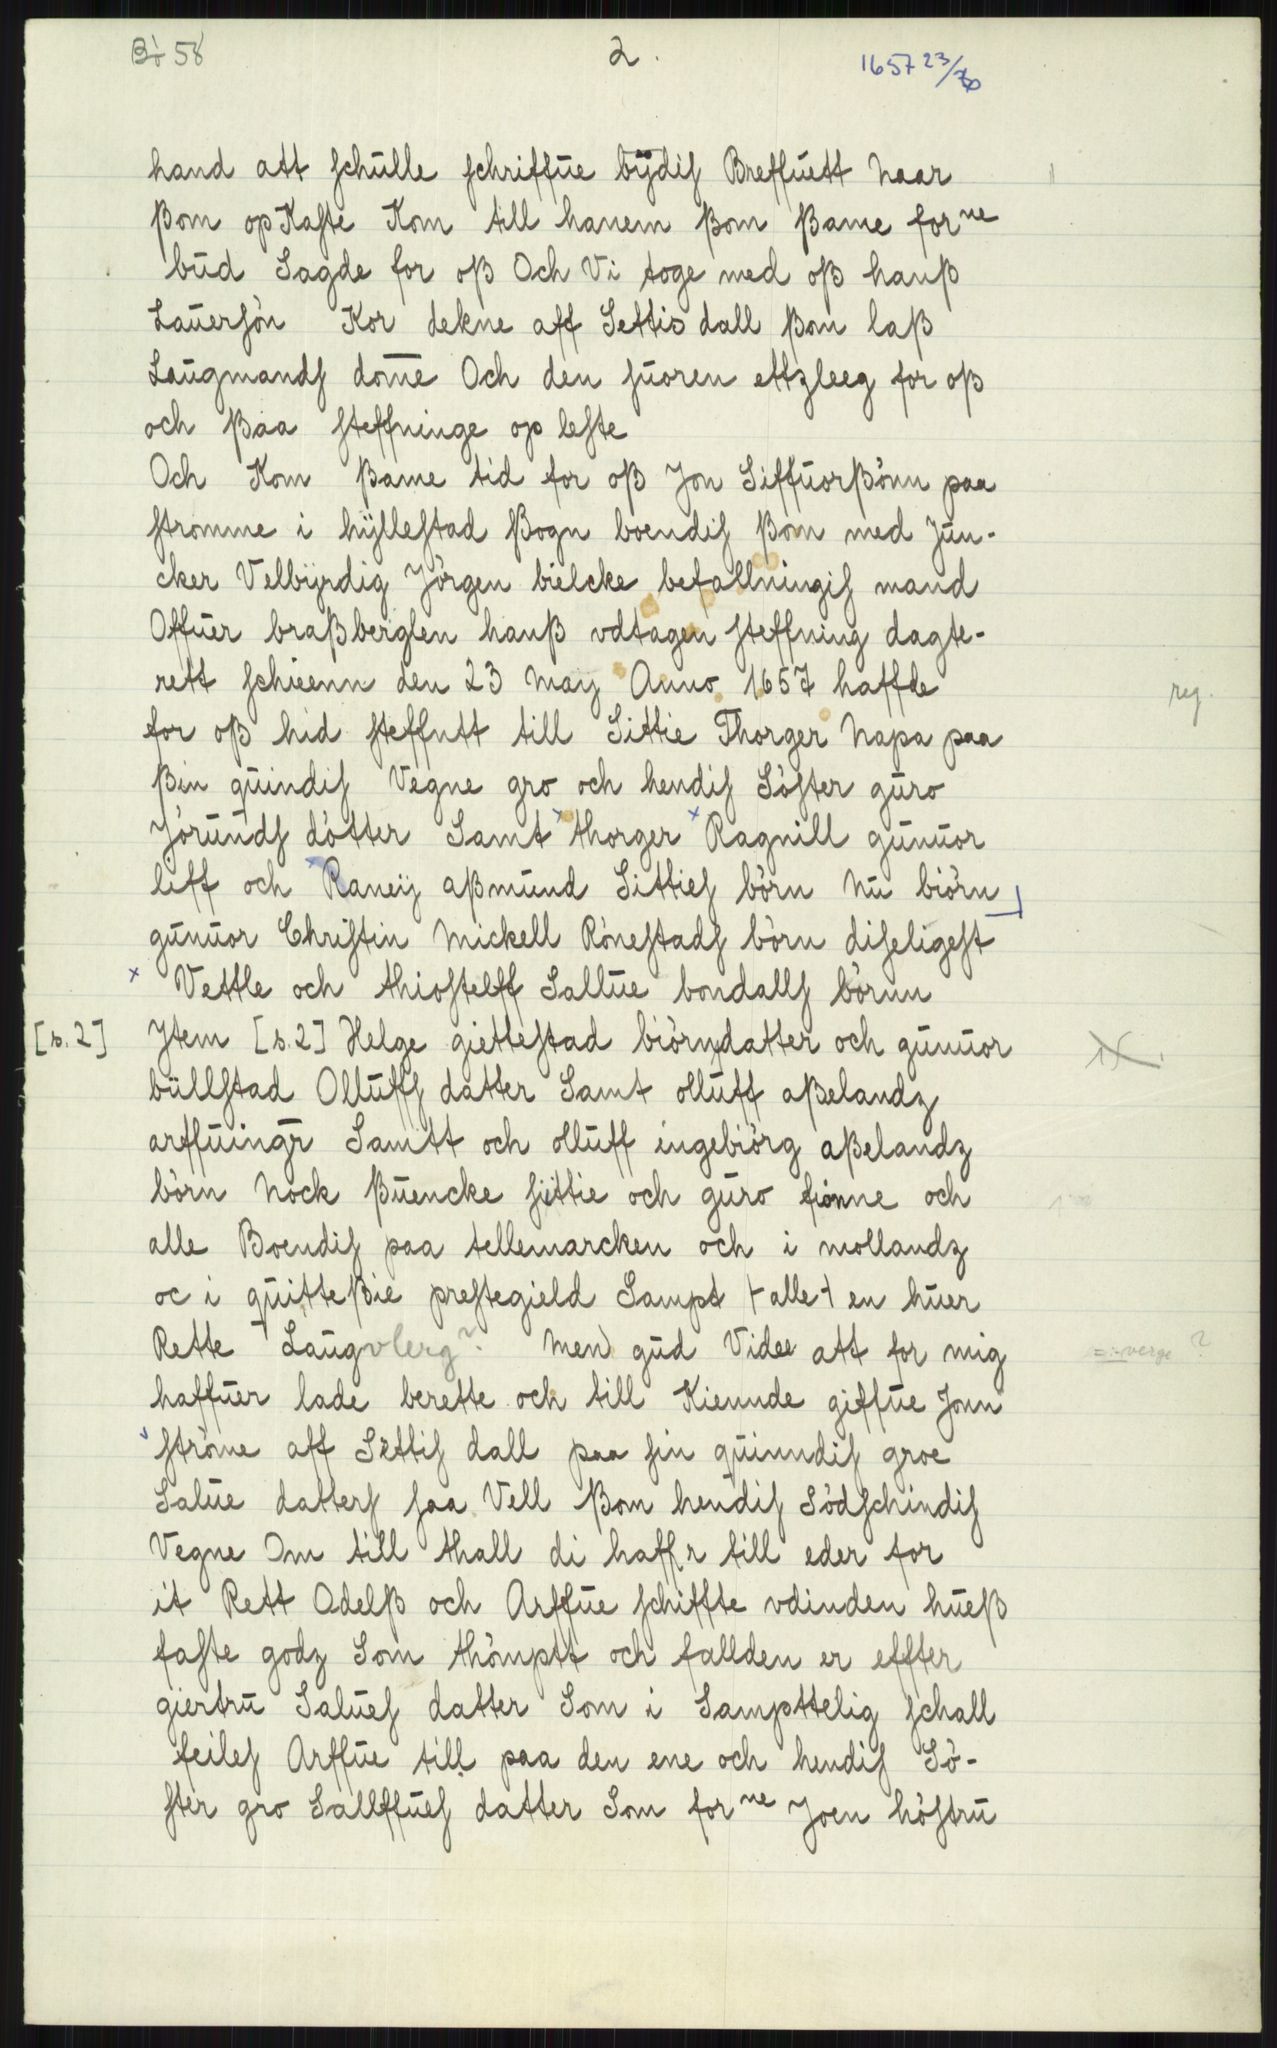 Bö 58
2.
1657 23/10
hand att schulle schriffue bÿdis Breffuett naar
ßom op Kaste Kom till hanem ßom ßame forne
bud Sagde for oß Och Vi toge med oß hanß
Lauersön Kor dekne aff Settis dall ßom laß
Laugmands dom̄e Och den suoren ettzleeg for oß
och ßaa steffninge op leste
Och Kom ßame tid for oß Jon Siffuorßönn paa
stromme i hÿllestad ßogn boendis ßom med Jun-
cker Velbÿrdig Jörgen bielcke befallningis mand
Offuer braßberglen hanß vdtagen steffning dagte-
rett schieenn den 23 Maÿ Anno 1657 haffde
reg.
for oß hid steffntt till Sittie Thorger Napa paa
ßin quindis Vegne gro och hendis Söster guro
Jörunds dötter Samt thorger Ragnill gunuor
liff och Raneÿ aßmund Sitties börn Nu biörn
gunuor Christin Mickell Rönestads börn diseligest
Vettle och thiostelff Sallue bondalls börnn
[s. 2] Jtem [s. 2] Helge giettestad biörndatter och gunuor
büllstad Olluffs datter Samt olluff aßelandz
arffuingr̄ Samtt och olluff ingebiörg aßelandz
börn Nock ßuencke sittie och guro fionne och
alle Boendis paa tellemarcken och i mollandz
oc i quitteßie prestegield Sampt ⊢alle⊣ en huer
Rette Laugvlerg? Men gud Videe att for mig
=:verge ?
haffuer lade berette och till Kiennde giffue Jonn
ströme aff Settis dall paa sin quinndis groe
Salue datters saa Vell ßom hendis Södschindis
Vegne Om till thall di haffr till eder for
it Rett Odelß och Arffue schiffte vdinden hueß
faste godz Som thömptt och fallden er effter
giertru Salues datter Som i Sampttelig schall
feiles Arffue till paa den ene och hendis Sö-
ster gro Sallffues datter Som forne Joen höstru